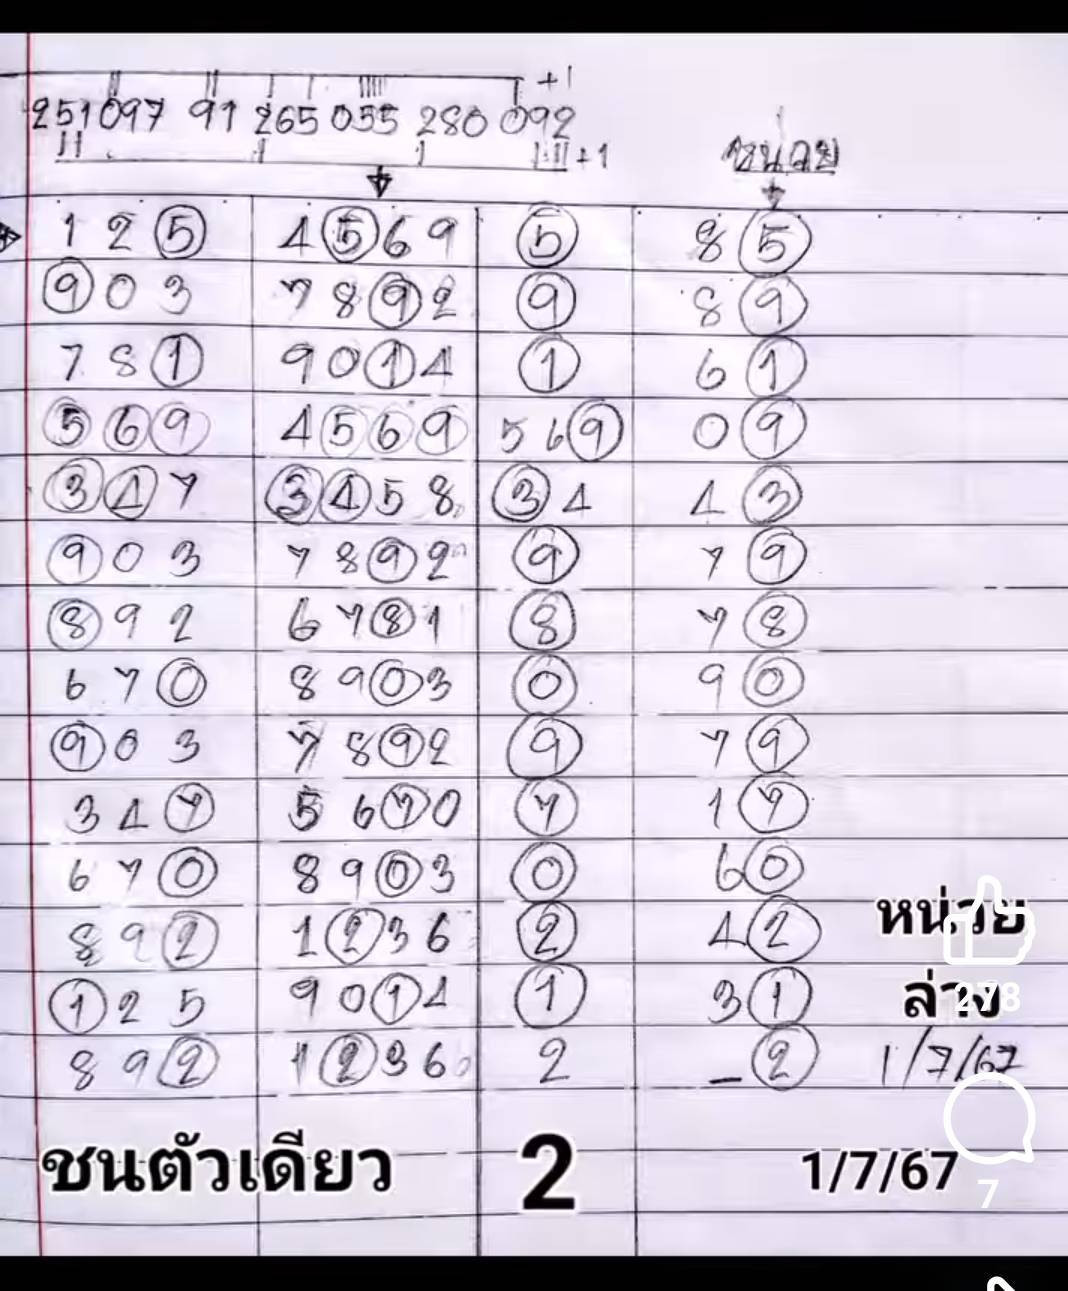 +1
251 097 91 265 055 280 092
+1
หน่วย
1 2 5 4 5 6 9 5 8 5
9 0 3 7 8 9 2 9 8 9
7 8 1 9 0 1 4 1 6 1
5 6 9 4 5 6 9 5 6 9 0 9
3 4 7 3 4 5 8 3 4 4 3
9 0 3 7 8 9 2 9 7 9
8 9 2 6 7 8 1 8 7 8
6 7 0 8 9 0 3 0 9 0
9 0 3 7 8 9 2 9 7 9
3 4 7 5 6 7 0 7 1 7
6 7 0 8 9 0 3 0 6 0
8 9 2 1 2 3 6 2 4 2
หน่วย
1 2 5 9 0 1 4 1 3 1
ล่าง
278
8 9 2 1 2 3 6 2 - 2
1/7/67
ชนตัวเดียว 2 1/7/67
7